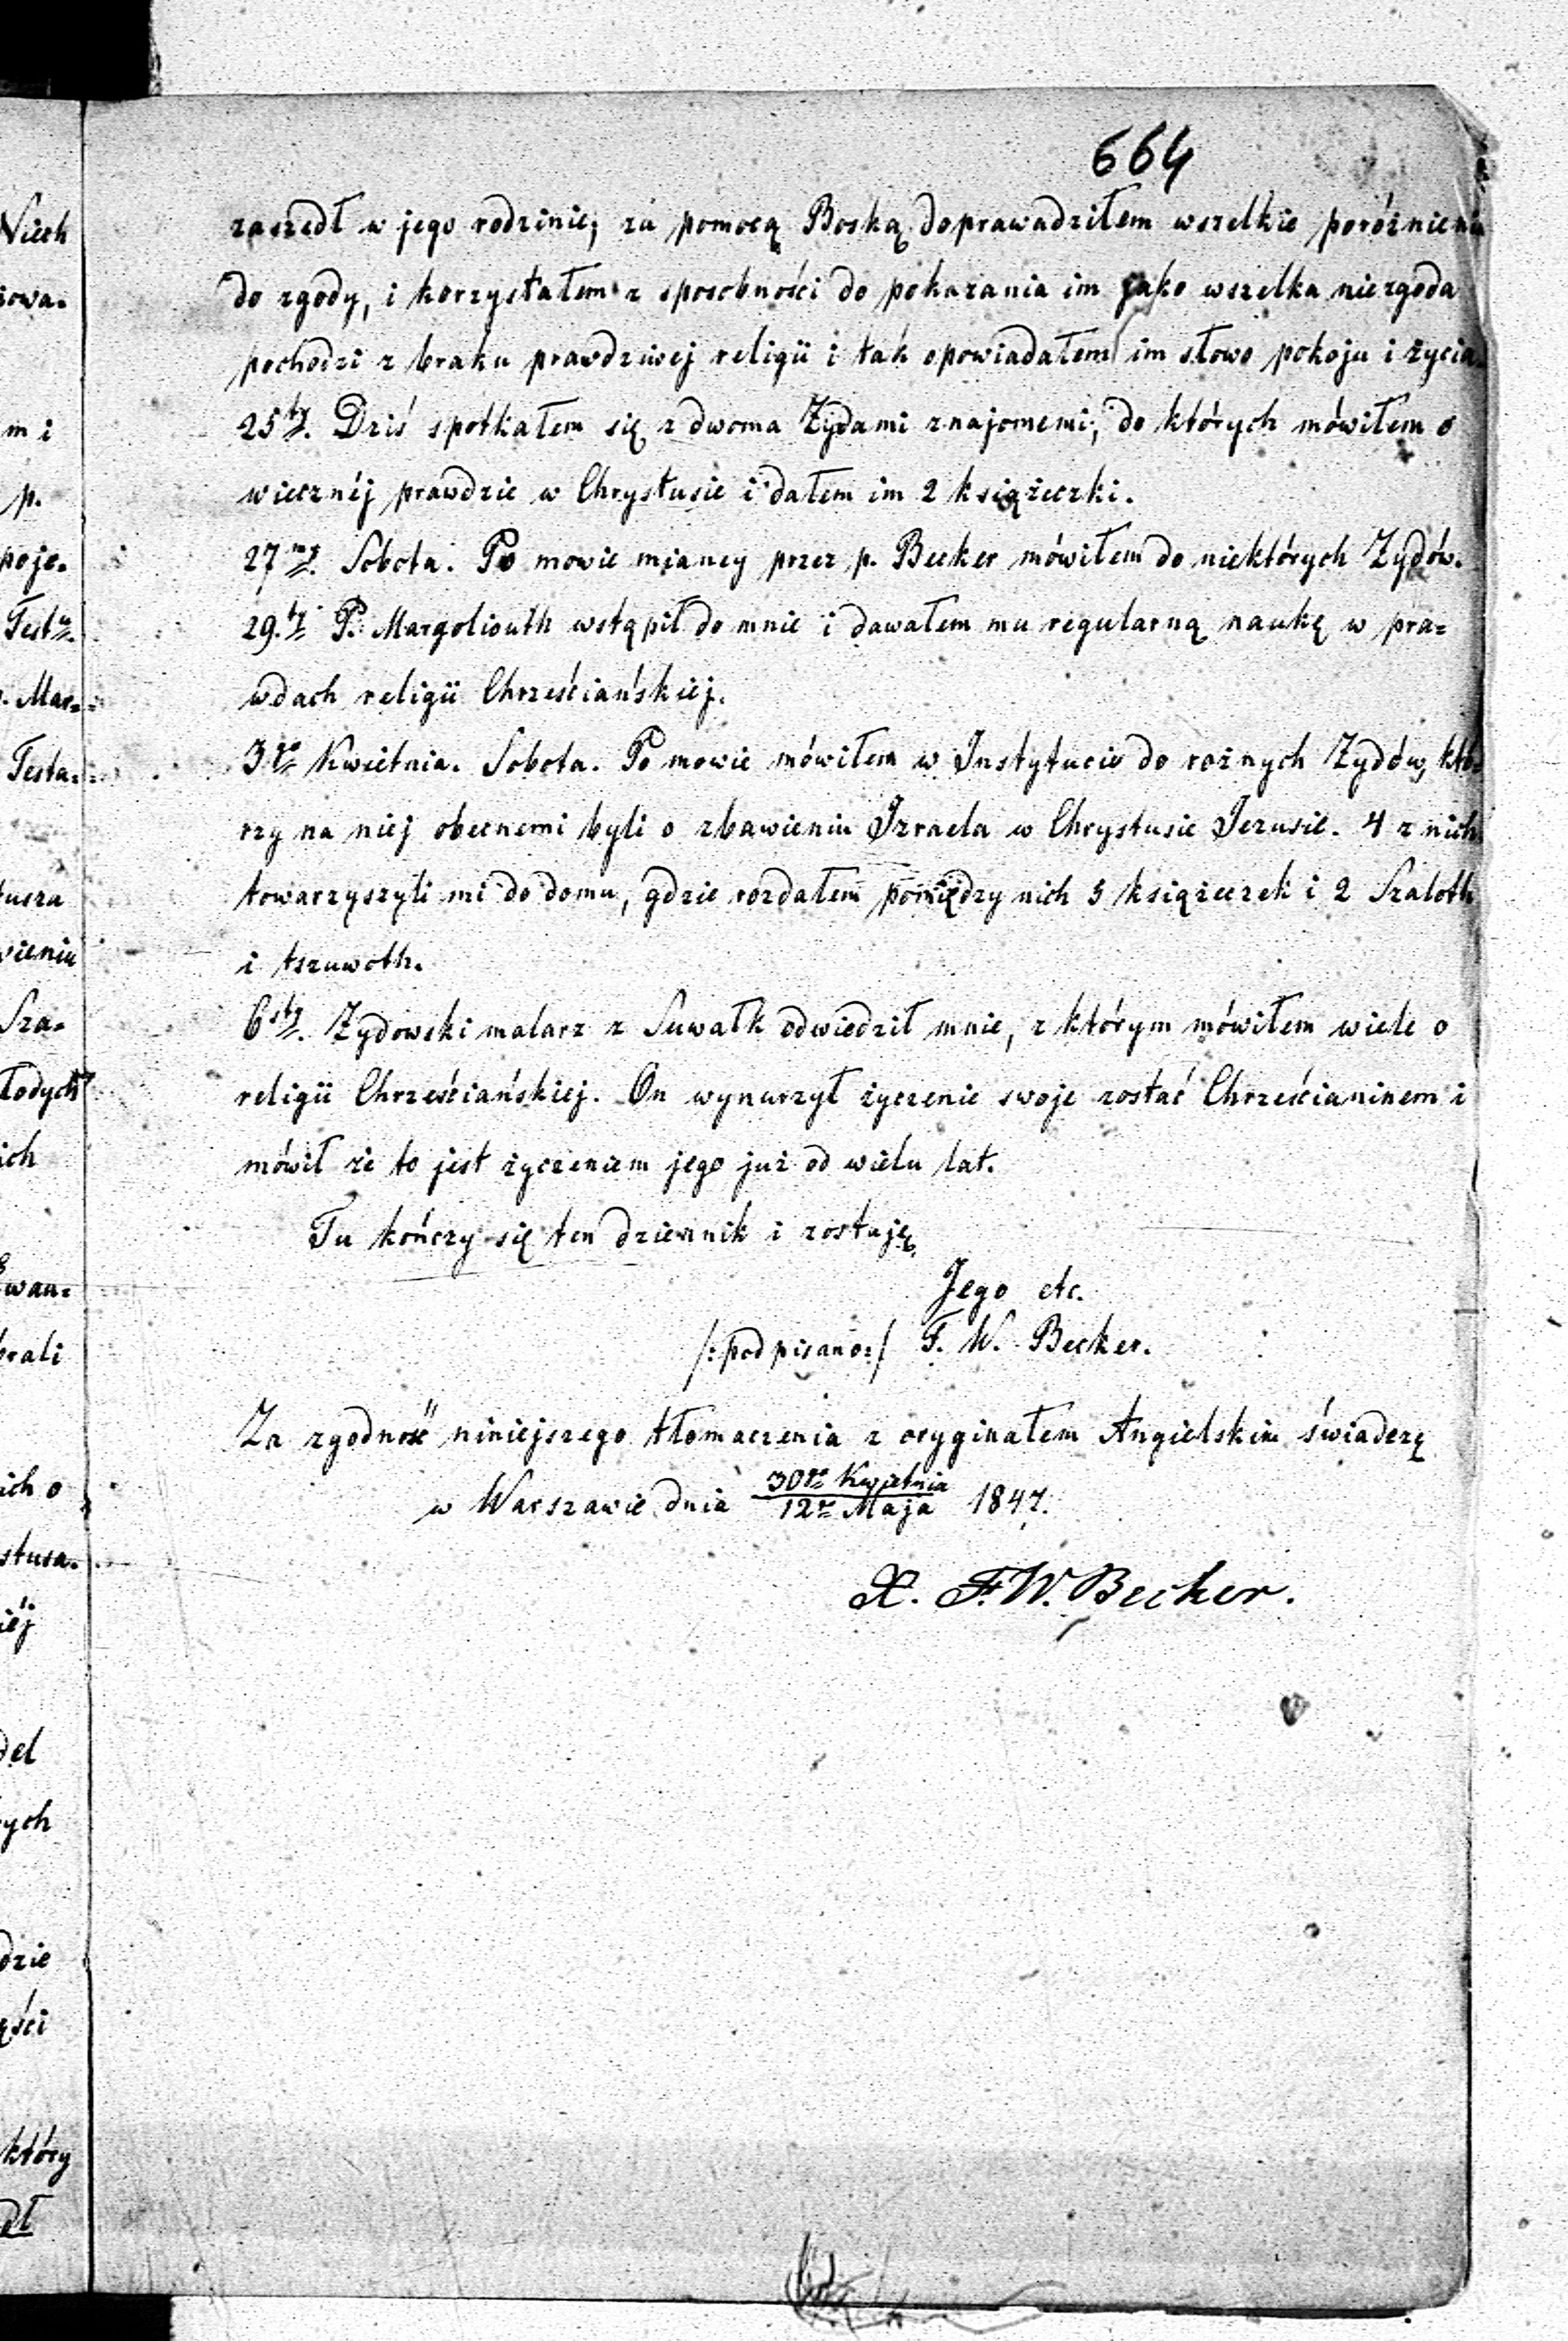 664
zaszedł w jego rodzinie; za pomocą Boską doprawadziłem wszelkie poróżnienia
do zgody, i korzystałem z sposobności do pokazania im jako wszelka niezgoda
pochodzi z braku prawdziwej religii i tak opowiadałem im słowo pokoju i życia.
25ty. Dziś spotkałem się z dwoma Żydami znajomemi, do których mówiłem o
wiecznéj prawdzie w Chrystusie i dałem im 2 książeczki.
27my. Sobota. Po mowie mianey przez p. Becker mówiłem do niektórych Żydów.
29.ty P. Margoliouth wstąpił do mnie i dawałem mu regularną naukę w pra=
wdach religii Chrześciańskiej.
3go Kwietnia. Sobota. Po mowie mówiłem w Instytucie do rożnych Żydów, któ=
rzy na niej obecnemi byli o zbawieniu Izraela w Chrystusie Jezusie. 4 z nich
towarzyszyli mi do domu, gdzie rozdałem pomiędzy nich 5 książeczek i 2 Szaloth
i tszuwoth.
6sty. Żydowski malarz z Suwałk odwiedził mnie, z którym mówiłem wiele o
religii Chrześciańskiej. On wynurzył życzenie swoje zostać Chrześcianinem i
mówił że to jest życzeniem jego już od wielu lat.
Tu kończy się ten dziennik i zostaję,
Jego etc.
/:podpisano:/ F. W. Becker.
Za zgodność niniejszego tłomaczenia z oryginałem Angielskim świadczę
w Warszawie dnia 30go Kwietnia / 12go Maja 1847.
X. F. W. Becker.
Niech
zowa=
m i
p.
poje=
Mar=
Testa=
tusza
wieniu
Sza=
łodych
ich
Ewan=
brali
ich o
stusa.
iéj
del
ych
dzie
ęści
który
dł